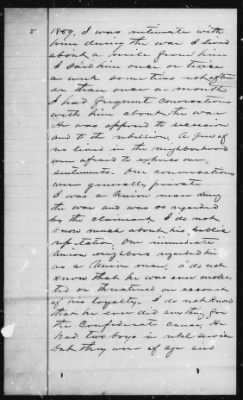 5 1859, I was intimate with
him during the war I lived
about a mile from him
I saw him once or twice
a week some times not oftener
than once a month
I had frequent conversations
with him about the war
He was opposed to secession
and to the rebellion, A few of
us lived in the neighborhood
were afraid to express our
sentiments. Our conversations
were generally private
I was a Union man during
the war and was so regarded
by the claimant, I do not
know much about his public
reputation, Our immediate
Union neighbors regarded him
as a Union man, I do not
know that he was ever moles
ted or threatened on account
of his loyalty. I do not know
that he ever did any thing for
the Confederate cause, He
had two boys in rebel service
but they were of age and